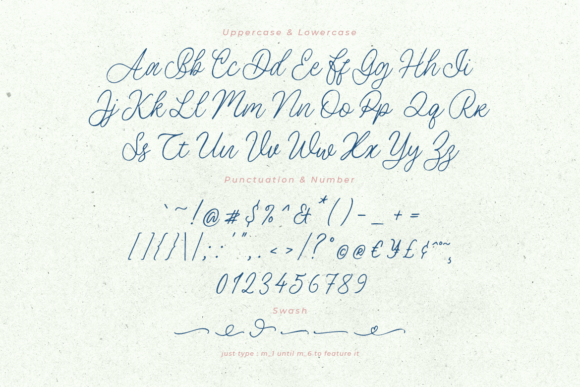 Uppercase & Lowercase
Aa Bb Cc Dd Ee Ff Gg Hh Ii
Jj Kk Ll Mm Nn Oo Pp Qq Rr
Ss Tt Uu Vv Ww Xx Yy Zz
Punctuation & Number
` ~ ! @ # $ % ^ & * ( ) - _ + =
[ ] { } \ | ; : ' " , . < > / ? ° © @ € ¥ £ ¢ ^ ~ ¸
0123456789
Swash
just type : m_1 until m_6 to feature it